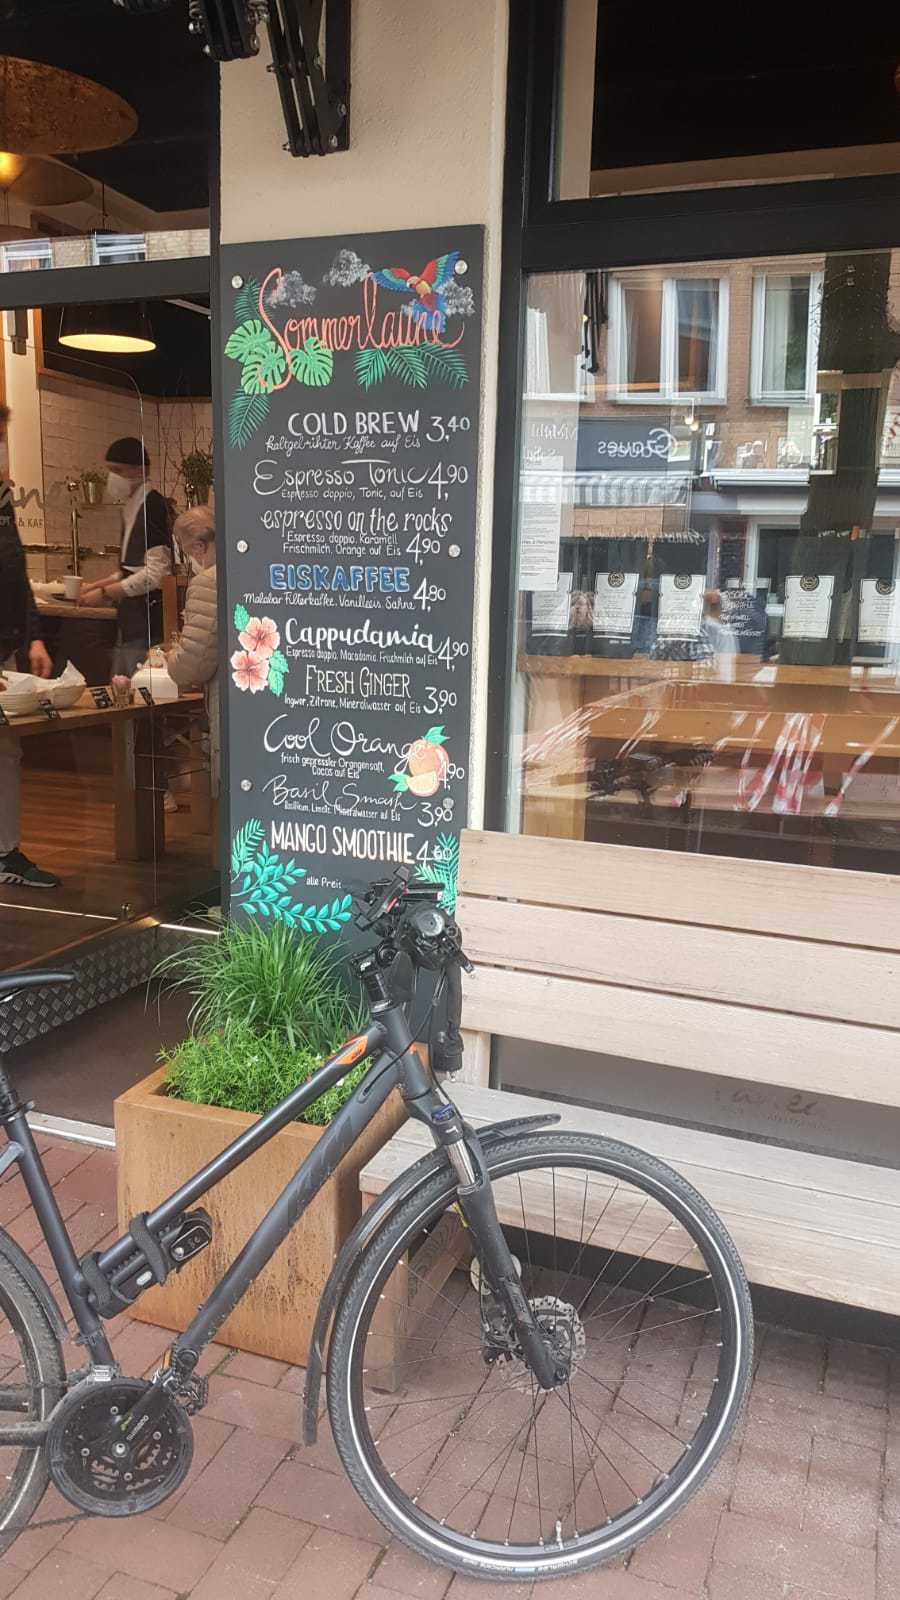 Sommerlaune
COLD BREW 3,40
kaltgebrühter Kaffee auf Eis
Espresso Tonic 4,90
Espresso doppio, Tonic, auf Eis
espresso on the rocks
Espresso doppio, Karamell
Frischmilch, Orange auf Eis 4,90
EISKAFFEE 4,80
Malabar Filterkaffe, Vanilleeis, Sahne
Cappudamia 4,90
Espresso doppio, Macadamia, Frischmilch auf Eis
FRESH GINGER 3,90
Ingwer, Zitrone, Mineralwasser auf Eis
Cool Orange 4,90
frisch gepresster Orangensaft,
Cocos auf Eis
Basil Smash 3,90
Basilikum, Limette, Mineralwasser auf Eis
MANGO SMOOTHIE 4,60
alle Preis
& KAF
KTM
SHIMANO